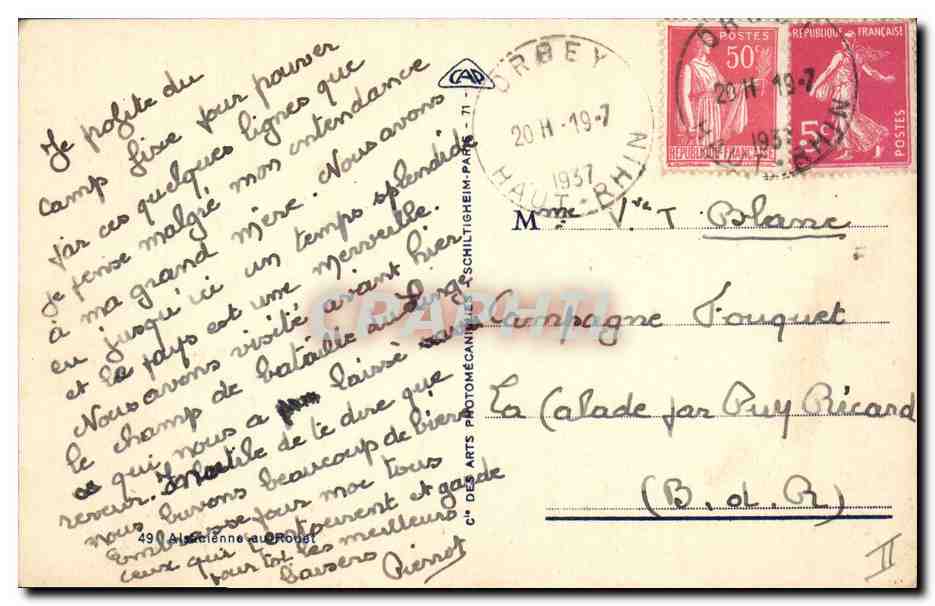 Je profite du
camp fixe pour pouvoir
par ces quelques lignes que
Je pense malgré mon intendance
à ma grand mère. Nous avons
eu jusqu'ici un temps splendide
et le pays est une merveille.
Nous avons visité avant hier
le champ de bataille du Linge
qui nous a laissé
rêveur. Inutile de te dire que
nous buvons beaucoup de bière
Embrasse pour moi tous
ceux qui t'entourent et garde
pour toi les meilleurs
baisers Pierrot
49 Alsacienne au Rouet
CAP
Cie DES ARTS PHOTOMÉCANIQUES - SCHILTIGHEIM-PARIS - 71 -
ORBEY
20 H - 19-7
1937
HAUT-RHIN
POSTES
50c
RÉPUBLIQUE FRANÇAISE
RÉPUBLIQUE FRANÇAISE
5c
POSTES
20 H 19-7
1937
Mme Vve T Blanc
Campagne Fouquet
La Calade par Puy Ricard
(B. d. R)
II
CARPHIL